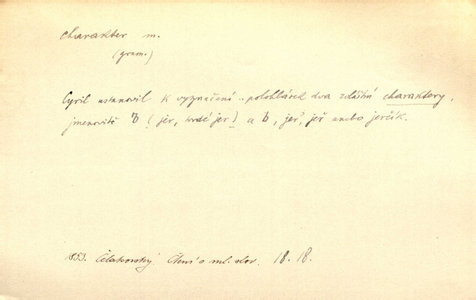 charakter m.
(gram.)
Cyril ustanovil k vyznačení polohlásek dva zvláštní charaktery,
jmenovitě ъ (jer, tvrdé jer) a ь, jeř, jeř anebo jerčík.
Čelakovský Čtení o ml. slov. 18. 18.